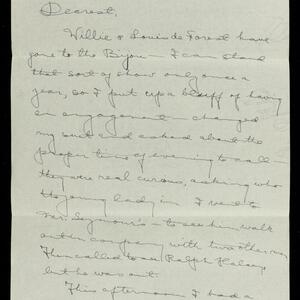 Dearest,
Willie & Louis de Forest have
gone to the Bijou — I can stand
that sort of show only once a
year, so I put up a bluff of having
an engagement — changed
my suit and asked about the
proper time of evening to call —
they were real curious, asking who
the young lady is. I went to
Mr. Seymour's — to see him walk
out in company with two other men
Then called to see Ralph Halsey
but he was out.
This afternoon I had a